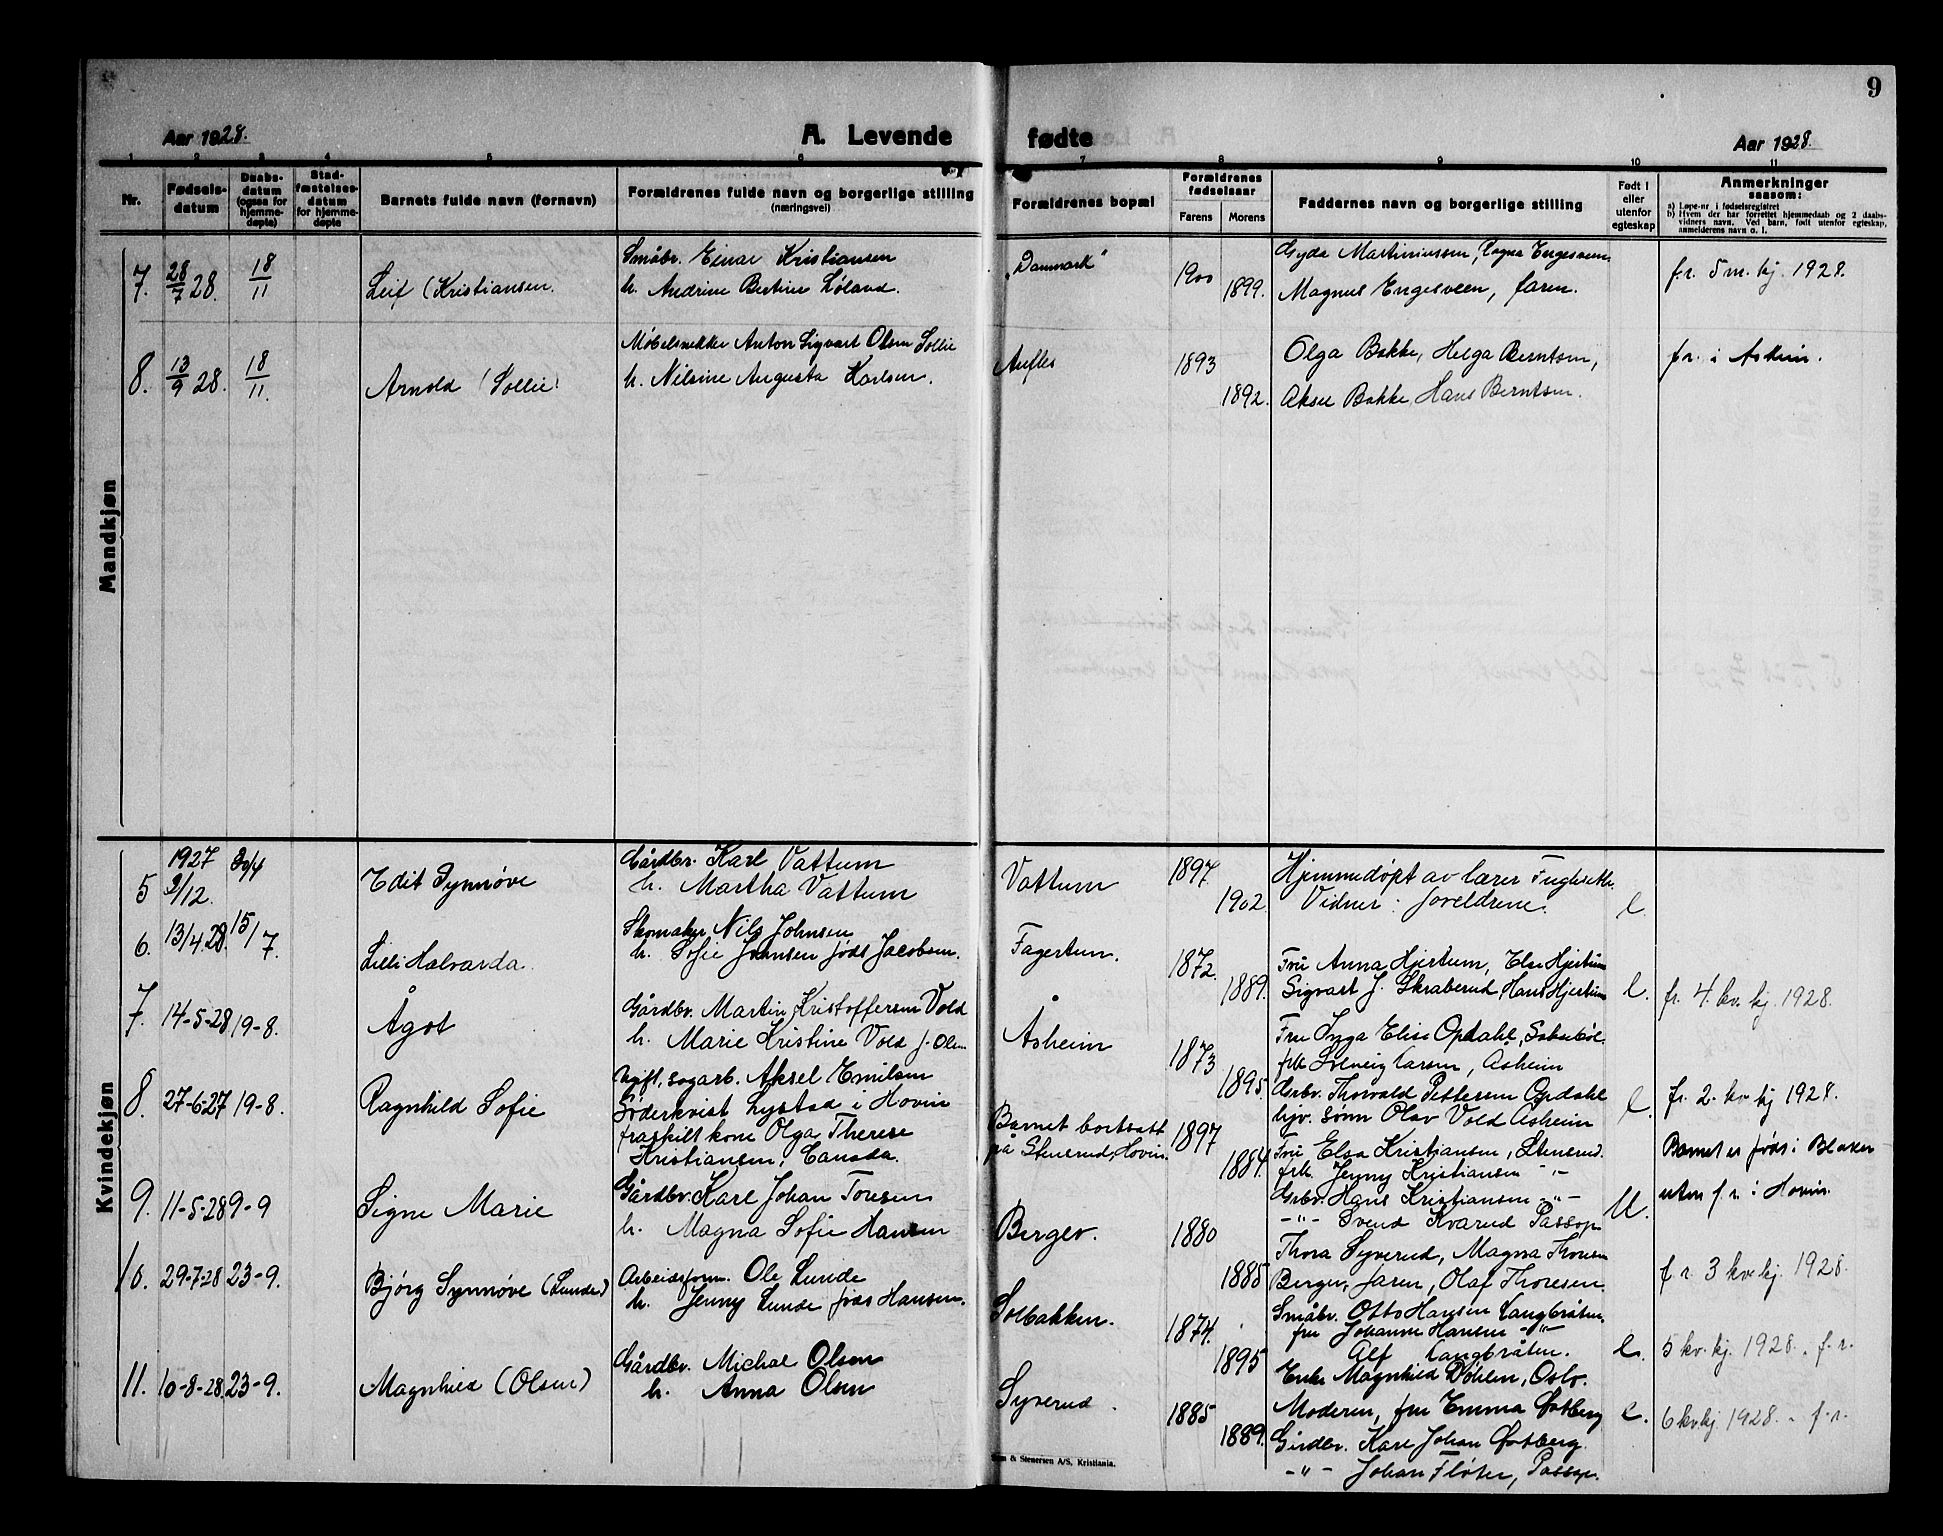 9
Aar 1928.
A. Levende
fødte
Aar 1928.
1 2 3 4 5 6 7 8 9 10 11
Nr.
Fødsels-
datum
Daabs-
datum
(ogsaa for
hjemme-
døpte)
Stad-
fæstelses-
datum
for hjemme-
døpte
Barnets fulde navn (fornavn)
Forældrenes fulde navn og borgerlige stilling
(næringsvei)
Forældrenes bopæl
Forældrenes
fødselsaar
Farens
Morens
Faddernes navn og borgerlige stilling
Født i
eller
utenfor
egteskap
Anmerkninger
saasom:
a) Løpe-nr i fødselsregistret
b) Hvem der har forrettet hjemmedaab og 2 daabs-
vidners navn. Ved barn, født utenfor egteskap,
anmelderens navn o. l.
Mandkjøn
7. 28/7 28. 18/11
Leif (Kristiansen
Småbr. Einar Kristiansen
h. Andrine Bertine Løland.
"Danmark"
1900
1899.
Gyda Martiniussen, Ragna Engesveen
Magnus Engesveen, faren.
f.r. 5 m. kj. 1928.
8. 13/9 28. 18/11.
Arnold (Sollie)
Møbelsnekker Anton Sigvart Olsen Sollie
h. Nilsine Augusta Karlsen.
1893
1892.
Olga Bakke, Helga Berntsen,
Aksel Bakke, Hans Berntsen.
f.r. i Askim.
Kvindekjøn
1927
5 2/12. 30/4
Edit Synnøve
Gårdbr. Karl Vattum
h. Martha Vattum
Vattum
1897.
1902.
Hjemmedøpt av lærer
Vidner: foreldrene.
e.
6. 13/4.28. 15/7.
Lilli Halvarda
Skomaker Nils Johnsen
h. Sofie Johnsen født Jacobsen.
Fagertun.
1872.
1889.
Fru Anna Hjertum, Else Hjertum
Sigvart J. Skraberud, Hans Hjertum
e.
fr. 4. kv. kj. 1928.
7. 14-5-28 19-8.
Ågot
Gårdbr. Martin Kristoffersen Vold
h. Marie Kristine Vold f. Olsen
Åsheim
1873
1895.
Fru Inga Elise Opdahl,
frk Solveig Larsen, Åsheim
Grbr. Thorvald Pettersen Opdahl
hjv. sønn Olav Vold Åsheim
e.
fr. 2. kv. kj 1928.
8. 27-6-27 19-8.
Ragnhild Sofie
Ugift, sagarb. Aksel Emilsen
Söderkvist Lystad i Hovin
fraskilt kone Olga Therese
Kristiansen, Canada.
Barnet bortsatt
på Stenerud, Hovin.
1897
1884.
Fru Elsa Kristiansen, Stenerud.
frk. Jenny Kristiansen -"-
Grbr. Hans Kristiansen -"-
-"- Svend Kvarud Passop
U.
Barnet er født i Blaker
uten f.r. i Hovin.
9. 11-5-28 9-9
Signe Marie
Gårdbr. Karl Johan Toresen
h. Magna Sofie Hansen
Berger.
1880
1885
Thora Syverud, Magna Thoresen
Berger, faren, Olaf Thoresen.
f.r. 3 kv. kj. 1928.
10. 29-7-28 23-9.
Bjørg Synnøve (Lunde)
Arbeidsform. Ole Lunde
h. Jenny Lunde født Hansen.
Solbakken.
1874.
1895
Småbr. Otto Hansen Langbråten,
fru Johanne Hansen -"-
Alf Langbråten.
Enke Magnhild Døhlen, Oslo.
e.
5 kv. kj. 1928. f.r.
11. 10-8-28. 23-9.
Magnhild (Olsen)
Gårdbr. Michal Olsen
h. Anna Olsen
Syverud.
1885
1889.
Moderen, fru Emma Østberg
Gårdbr. Karl Johan Østberg.
-"- Johan Fløter, Passop.
e.
6 kv. kj. 1928. f.r.
& Stenersen A/S, Kristiania.